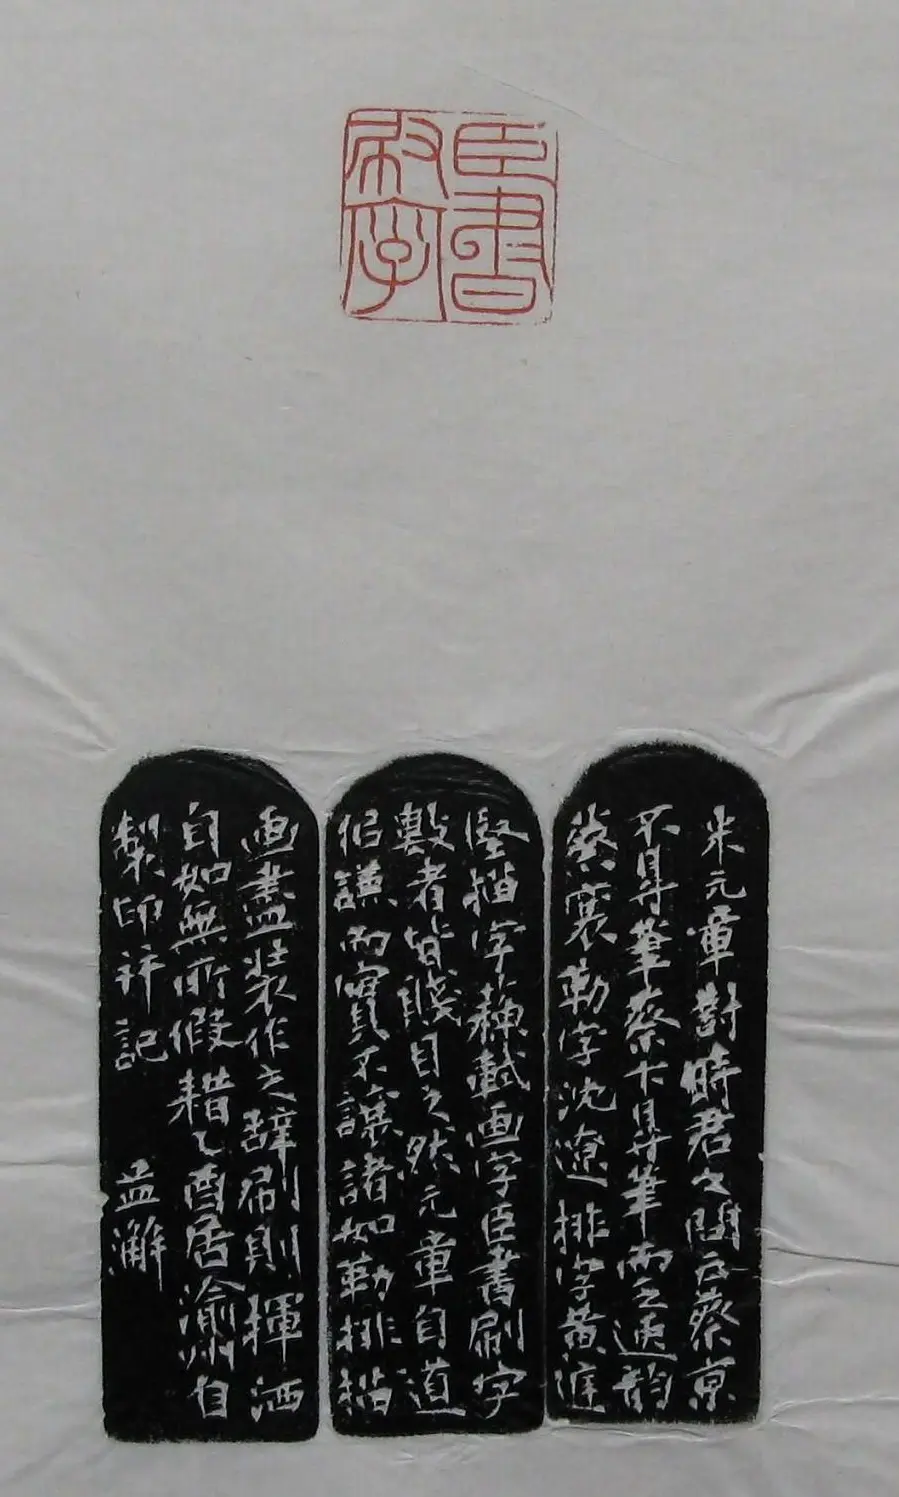 臣書
刷字
米元章對時君之問云蔡京
不得筆蔡卞得筆而乏逸韵
蔡襄勒字沈遼排字黄庭
堅描字蘇軾画字臣書刷字
數者皆賤目之然元章自道
似謙而實不讓諸如勒排描
画盡裝作之辭刷則揮洒
自如無所假耤乙酉居渝州自
製印并記